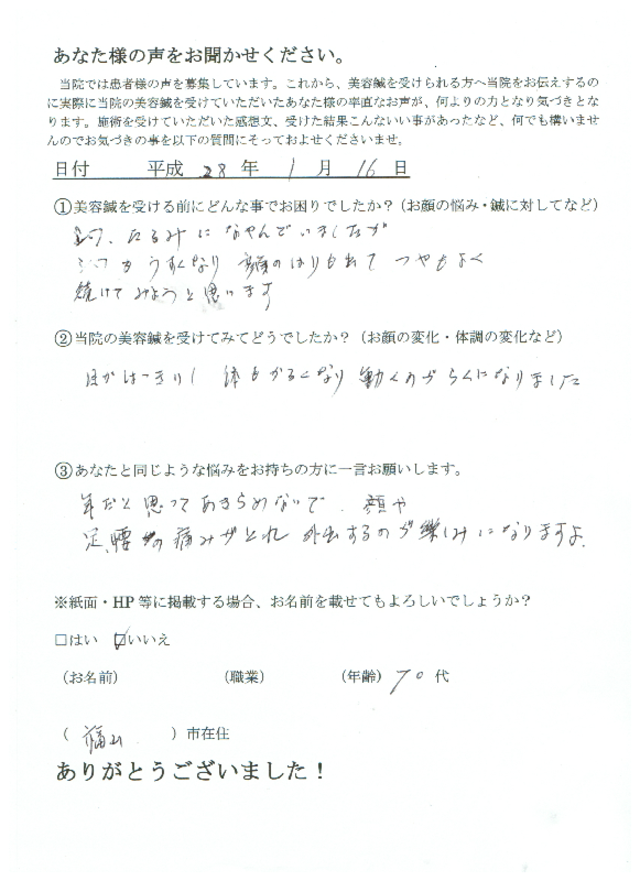 あなた様の声をお聞かせください。
当院では患者様の声を募集しています。これから、美容鍼を受けられる方へ当院をお伝えするの
に実際に当院の美容鍼を受けていただいたあなた様の率直なお声が、何よりの力となり気づきとな
ります。施術を受けていただいた感想文、受けた結果こんないい事があったなど、何でも構いませ
んのでお気づきの事を以下の質問にそっておよせくださいませ。
日付 平成 28 年 1 月 16 日
①美容鍼を受ける前にどんな事でお困りでしたか?(お顔の悩み・鍼に対してなど)
シワ、たるみになやんでいましたが
シワもうすくなり 顔のはりも出て つやもよく
続けてみようと思います
②当院の美容鍼を受けてみてどうでしたか?(お顔の変化・体調の変化など)
目がはっきりし 体もかるくなり 動くのがらくになりました
③あなたと同じような悩みをお持ちの方に一言お願いします。
年だと思ってあきらめないで、顔や
足、腰の痛みがとれ 外出するのが楽しみになりますよ
※紙面・HP 等に掲載する場合、お名前を載せてもよろしいでしょうか?
□はい ☑いいえ
(お名前) (職業) (年齢) 70 代
( 福山 )市在住
ありがとうございました!